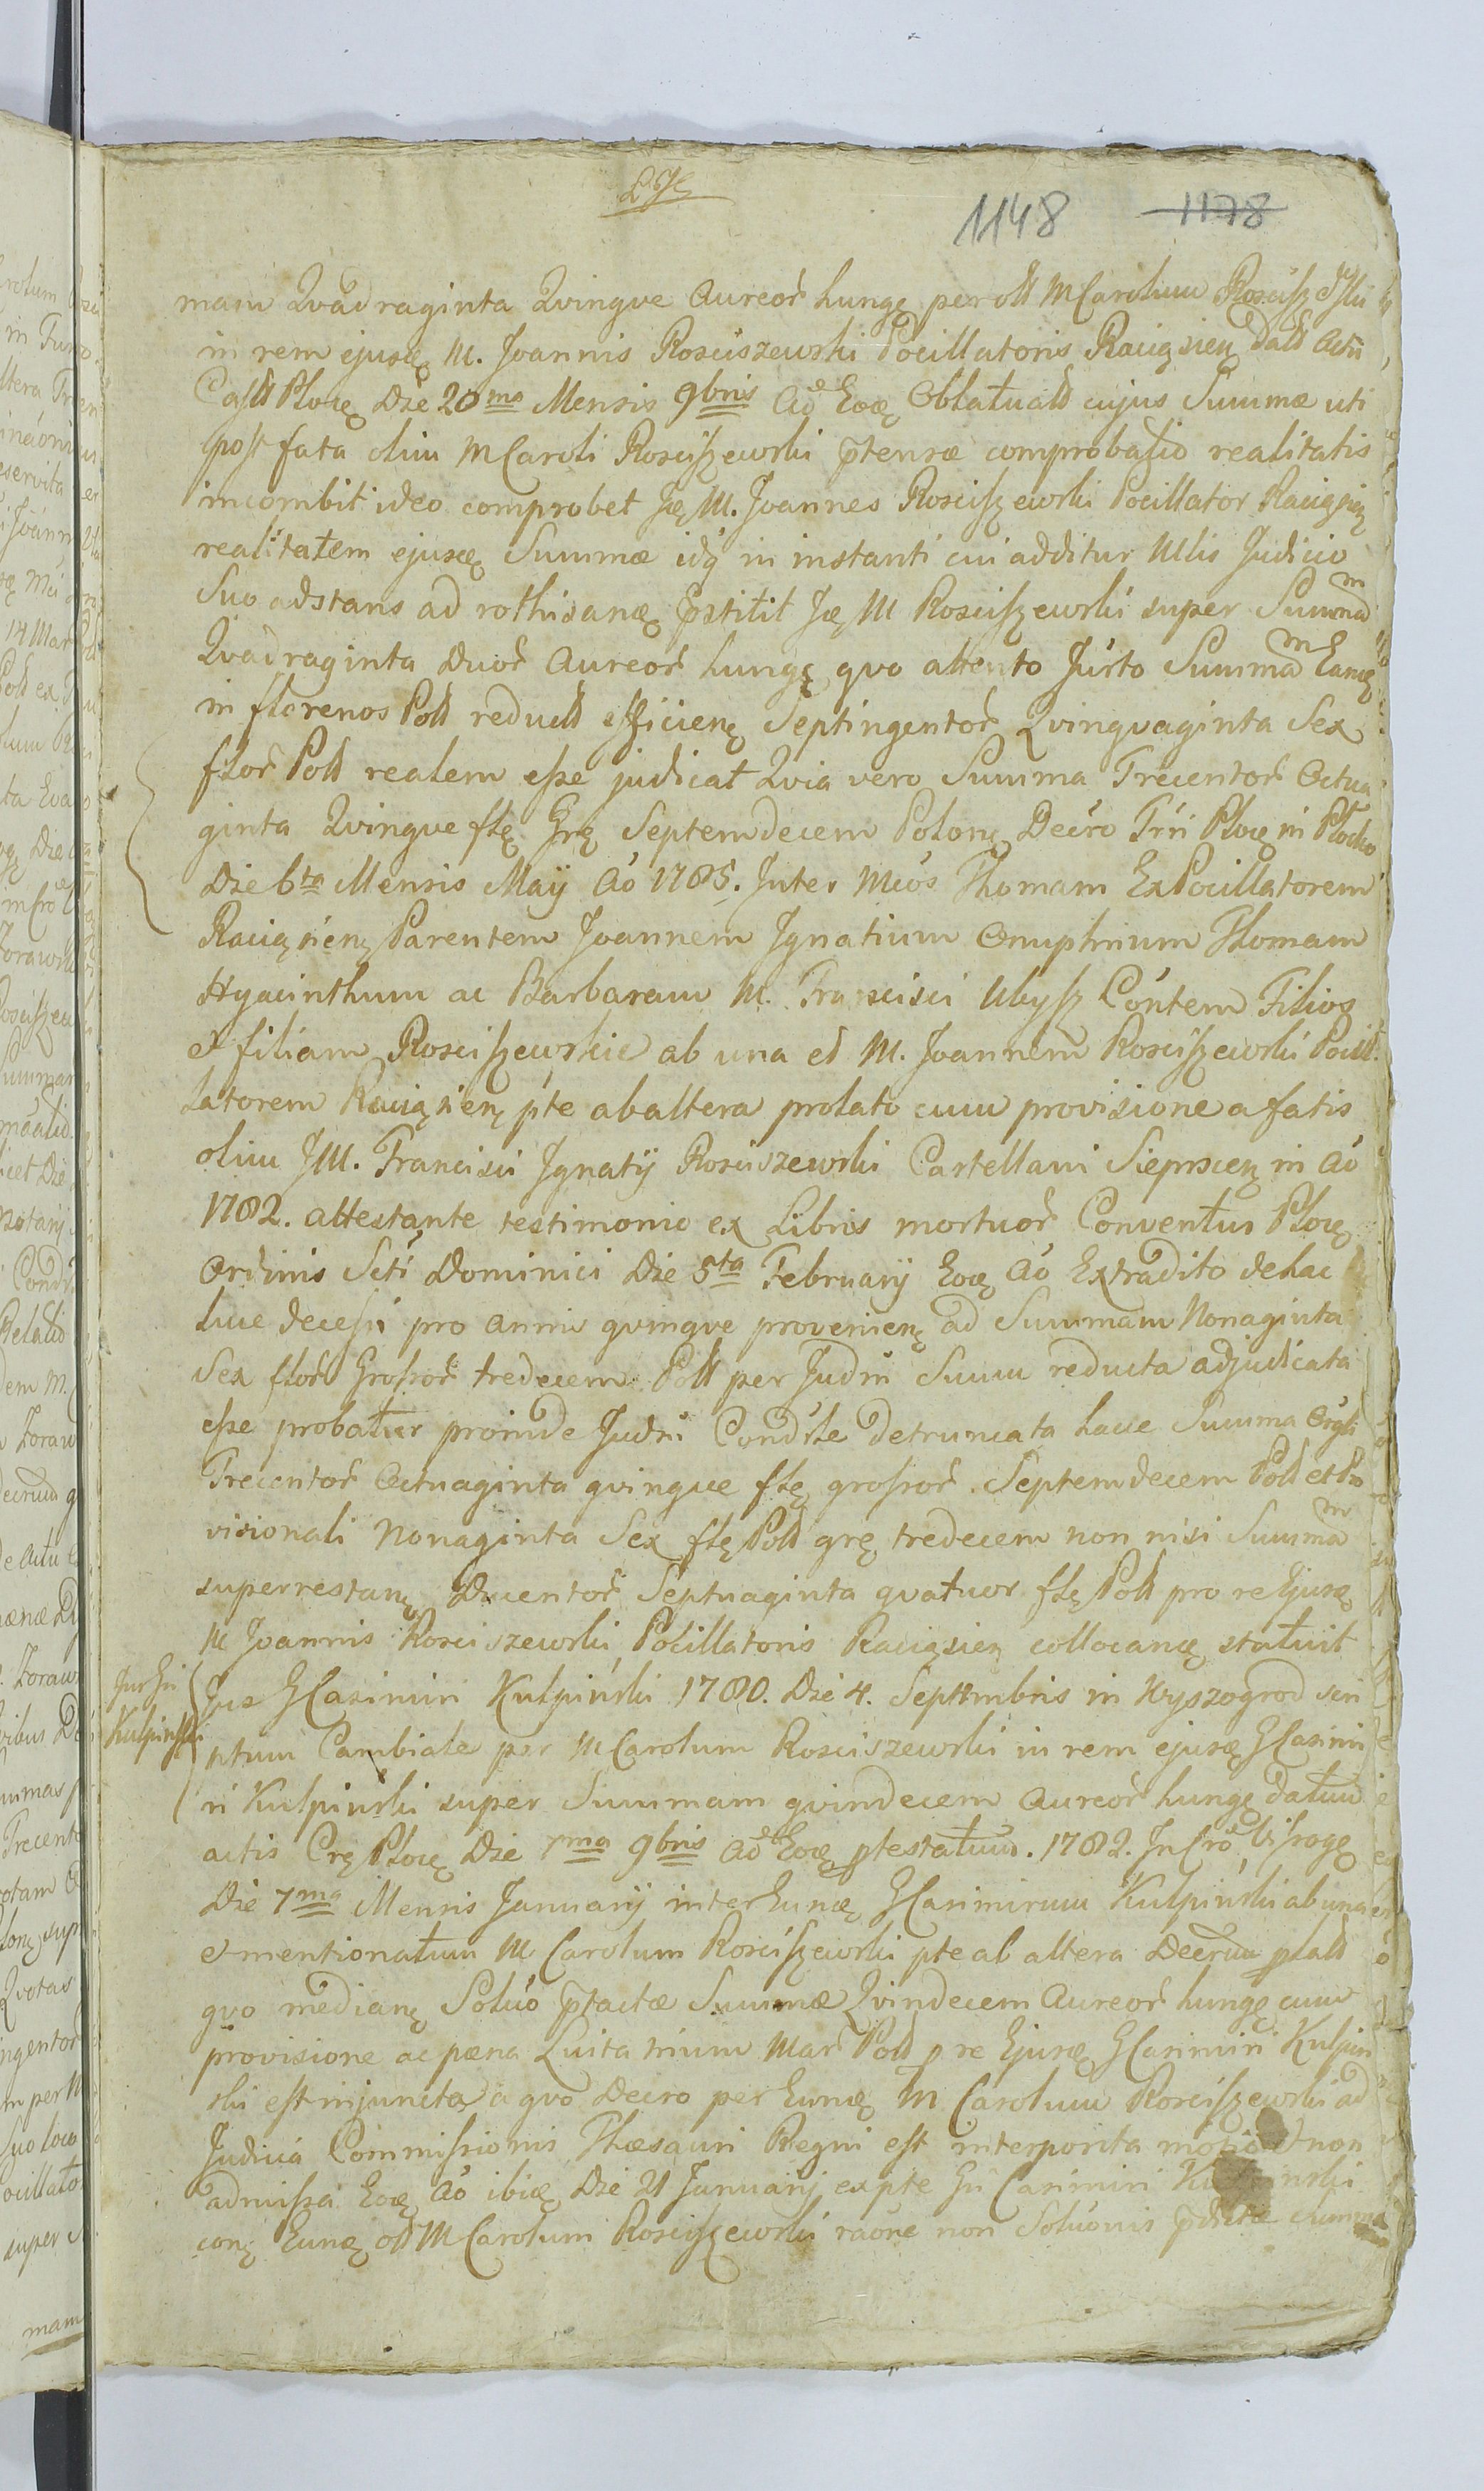 1148 1178
mam Qvadraginta Qvinqve Aureor̃ hungę per olt̃ M Carolum Rosciszewski
in rem ejusdę M. Joannis Rosciszewski Pocillatoris Raciązienę dat̃ Actis
Castr̃ Plocę Die 20ma Mensis 9bris Aõ Eodę Oblatuat̃ cujus Summæ uti
post fata olim M Caroli Rosciszewski p̃tensæ comprobatio realitatis
incombit ideo comprobet Idę M. Joannes Rosciszewski Pocillator Raciązienę
realitatem ejusdę Summæ idq̃ in instanti cui additur Mlis Judicio
Suo adstans ad rothisandę p̃stitit Idę M Rosciszewski super Summam
Qvadraginta Duor̃ Aureor̃ hungę qvo attento Jurto Summam Eandę
in florenos Poll reduct̃ efficienę Septingentor̃ Qvinqvaginta Sex
flor̃ Poll realem esse judicat Qvia vero Summa Trecentor̃ Octua
ginta Qvinqve flę Grę Septemdecem Polonę Decro Trii Plocę in Płocko
Die 6ta Mensis Maij Ao 1785. Inter Mcos Thomam ExPocillatorem
Raciązienę Parentem Joannem Ignatium Onuphrium Thomam
Hyacinthum ac Barbaram M. Francisci Ulysz Cońtem Filios
et filiam Rosciszewskie ab una et M. Joannem Rosciszewski Pocil
latorem Raciązienę pte ab altera prolato cum provisione a fatis
olim JM. Francisci Ignatij Rosciszewski Castellani Sieprscenę in Ao
1782. attestante testimonio ex Libris mortuor̃ Conventus Plocę
Ordinis Scti Dominici Die 5ta February Eodę Ao Extradito dehac
luce decessi pro annis qvinqve provenienę ad Summam Nonaginta
Sex flor̃ Grossor̃ tredecem Poll per Judm̃ Suum reducta adjudicata
esse probatur proinde Judm̃ Condrle detruncata hacce Summa Orgli
Trecentor̃ Octuaginta qvinqve flę grossor̃ Septemdecem Poll et Pro
visionali Nonaginta Sex flę Poll grę tredecem non nisi Summam
superrestanę Ducentor̃ Septuaginta qvatuor flę Poll pro re Ejusdę
M Joannis Rosciszewski Pocillatoris Raciązienę collocandę statuit
Jus Gñi
Kulpinski
Jus G Casimiri Kulpinski 1780. Die 4. Septembris in Wyszogrod scri
ptum Cambiale per M Carolum Rosciszewski in rem ejusdę G Casimi
ri Kulpinski super Summam qvindecem Aureor̃ hungę datum
actis Crę Plocę Die 7ma 9bris Aõ Eodę ptestatum. 1782. In Cro Visrogę
Die 7ma Mensis January inter Eundę G Casimirum Kulpinski ab una
et mentionatum M Carolum Rosciszewski pte ab altera Decrum plat̃
qvo medianę Soluo p̃tactæ Summæ Qvindecem Aureor̃ hungę cum
provisione ac pæna Luita trium Mar̃ Poll p re Ejusdę G Casimiri Kulpin
ski est injuncta a qvo Decro per Eundę M Carolum Rosciszewski ad
Judicia Commissionis Thesauri Regni est interposita motio et non
admissa Eodę Ao ibidę Die 21 January ex pte Gñi Casimiri Kulpinski
conę Eundę olt̃ M Carolum Rosciszewski raóne non Soluonis p̃dictæ summæ